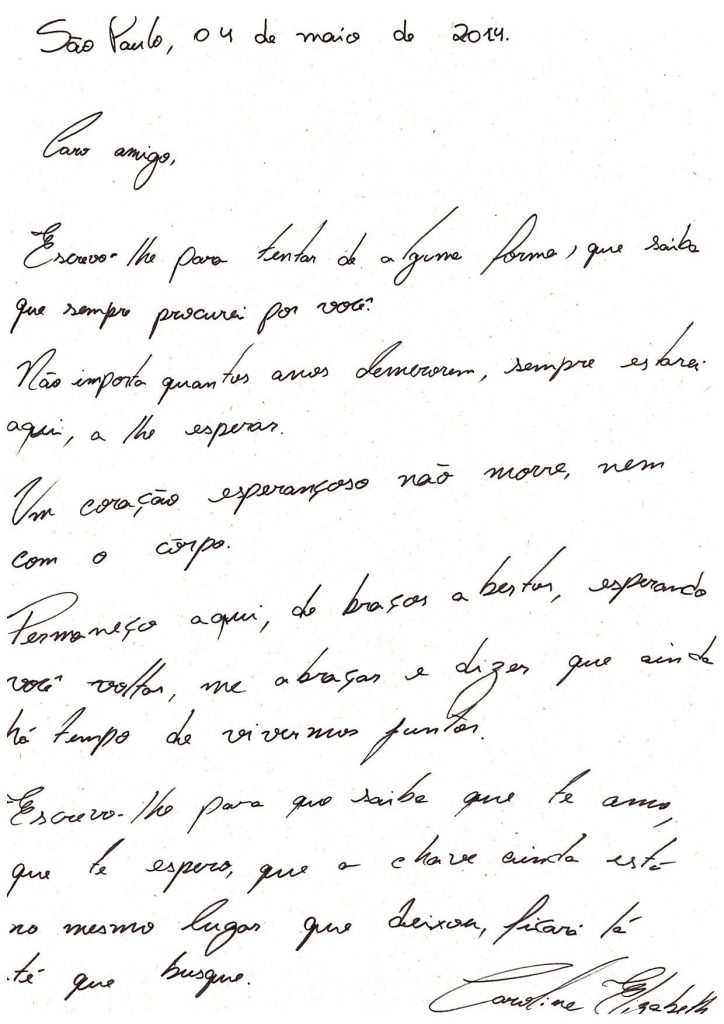 São Paulo, 04 de maio de 2014.
Caro amigo,
Escrevo-lhe para tentar de alguma forma, que saiba
que sempre procurei por você.
Não importa quantos anos demorarem, sempre estarei
aqui, a lhe esperar.
Um coração esperançoso não morre, nem
com o corpo.
Permaneço aqui, de braços abertos, esperando
você voltar, me abraçar e dizer que ainda
há tempo de vivermos juntos.
Escrevo-lhe para que saiba que te amo,
que te espero, que a chave ainda está
no mesmo lugar que deixou, ficará lá
té que busque.
Caroline Elizabeth